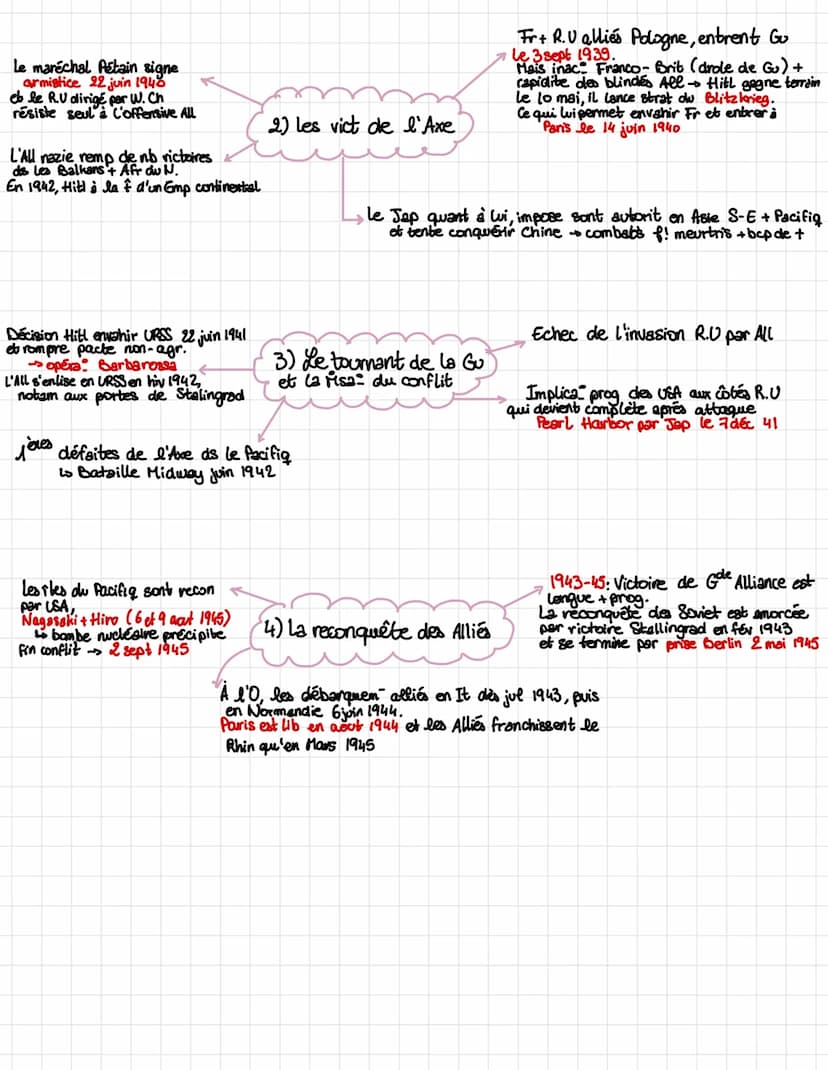 Fr + R.U alliés Pologne, entrent Gu
le 3 sept 1939.
Mais inac° Franco-Brit (drole de Gu) +
rapidite des blindés All → Hitl gagne terrain
le 10 mai, il lance strat du Blitzkrieg.
Ce qui lui permet envahir Fr et entrer à
Paris le 14 juin 1940
Le maréchal Pétain signe
armistice 22 juin 1940
et le R.U dirigé par W. Ch
résiste seul à l'offensive All
2) Les vict de l'Axe
L'All nazie remp de nb victoires
ds les Balkans + Afr du N.
En 1942, Hitl à la t̂ d'un Emp continental
Le Jap quant à lui, impose sont autorit en Asie S-E + Pacifiq
et tente conquérir Chine → combats f! meurtris + bcp de †
Décision Hitl envahir URSS 22 juin 1941
et rompre pacte non-agr.
→ opéra° Barbarossa
L'All s'enlise en URSS en hiv 1942,
notam aux portes de Stalingrad
3) Le tournant de la Gu
et la msa° du conflit
Echec de l'invasion R.U par All
Implica° prog des USA aux côtés R.U
qui devient complète après attaque
Pearl Harbor par Jap le 7 déc 41
1ères défaites de l'Axe ds le Pacifiq
↳ Bataille Midway juin 1942
Les îles du Pacifiq sont recon
par USA,
Nagasaki + Hiro (6 et 9 aout 1945)
↳ bombe nucléaire précipite
fin conflit → 2 sept 1945
4) La reconquête des Alliés
1943-45: Victoire de Gde Alliance est
longue + prog.
La reconquête des Soviet est amorcée
par victoire Stallingrad en fév 1943
et se termine par prise Berlin 2 mai 1945
À l'O, les débarquem- alliés en It dès jul 1943, puis
en Normandie 6 juin 1944.
Paris est lib en août 1944 et les Alliés franchissent le
Rhin qu'en Mars 1945